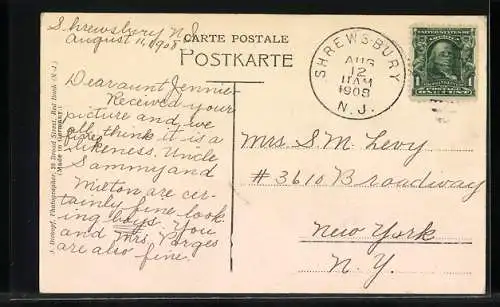 Shrewsbury N.J.
August 11, 1908
CARTE POSTALE
POSTKARTE
Dear aunt Jennie
Received your
picture and we
all think it is a
fine likeness. Uncle
Sammy and
Milton are cer-
tainly fine look
ing boys. You
and Mrs. Porges
are also fine.
Photographer, 28 Broad Street, Red Bank (N.J.)
(Made in Germany)
SHREWSBURY
AUG
12
11 AM
1908
N.J.
1
Mrs. S. M. Levy
# 3610 Broadway
New York
N.Y.